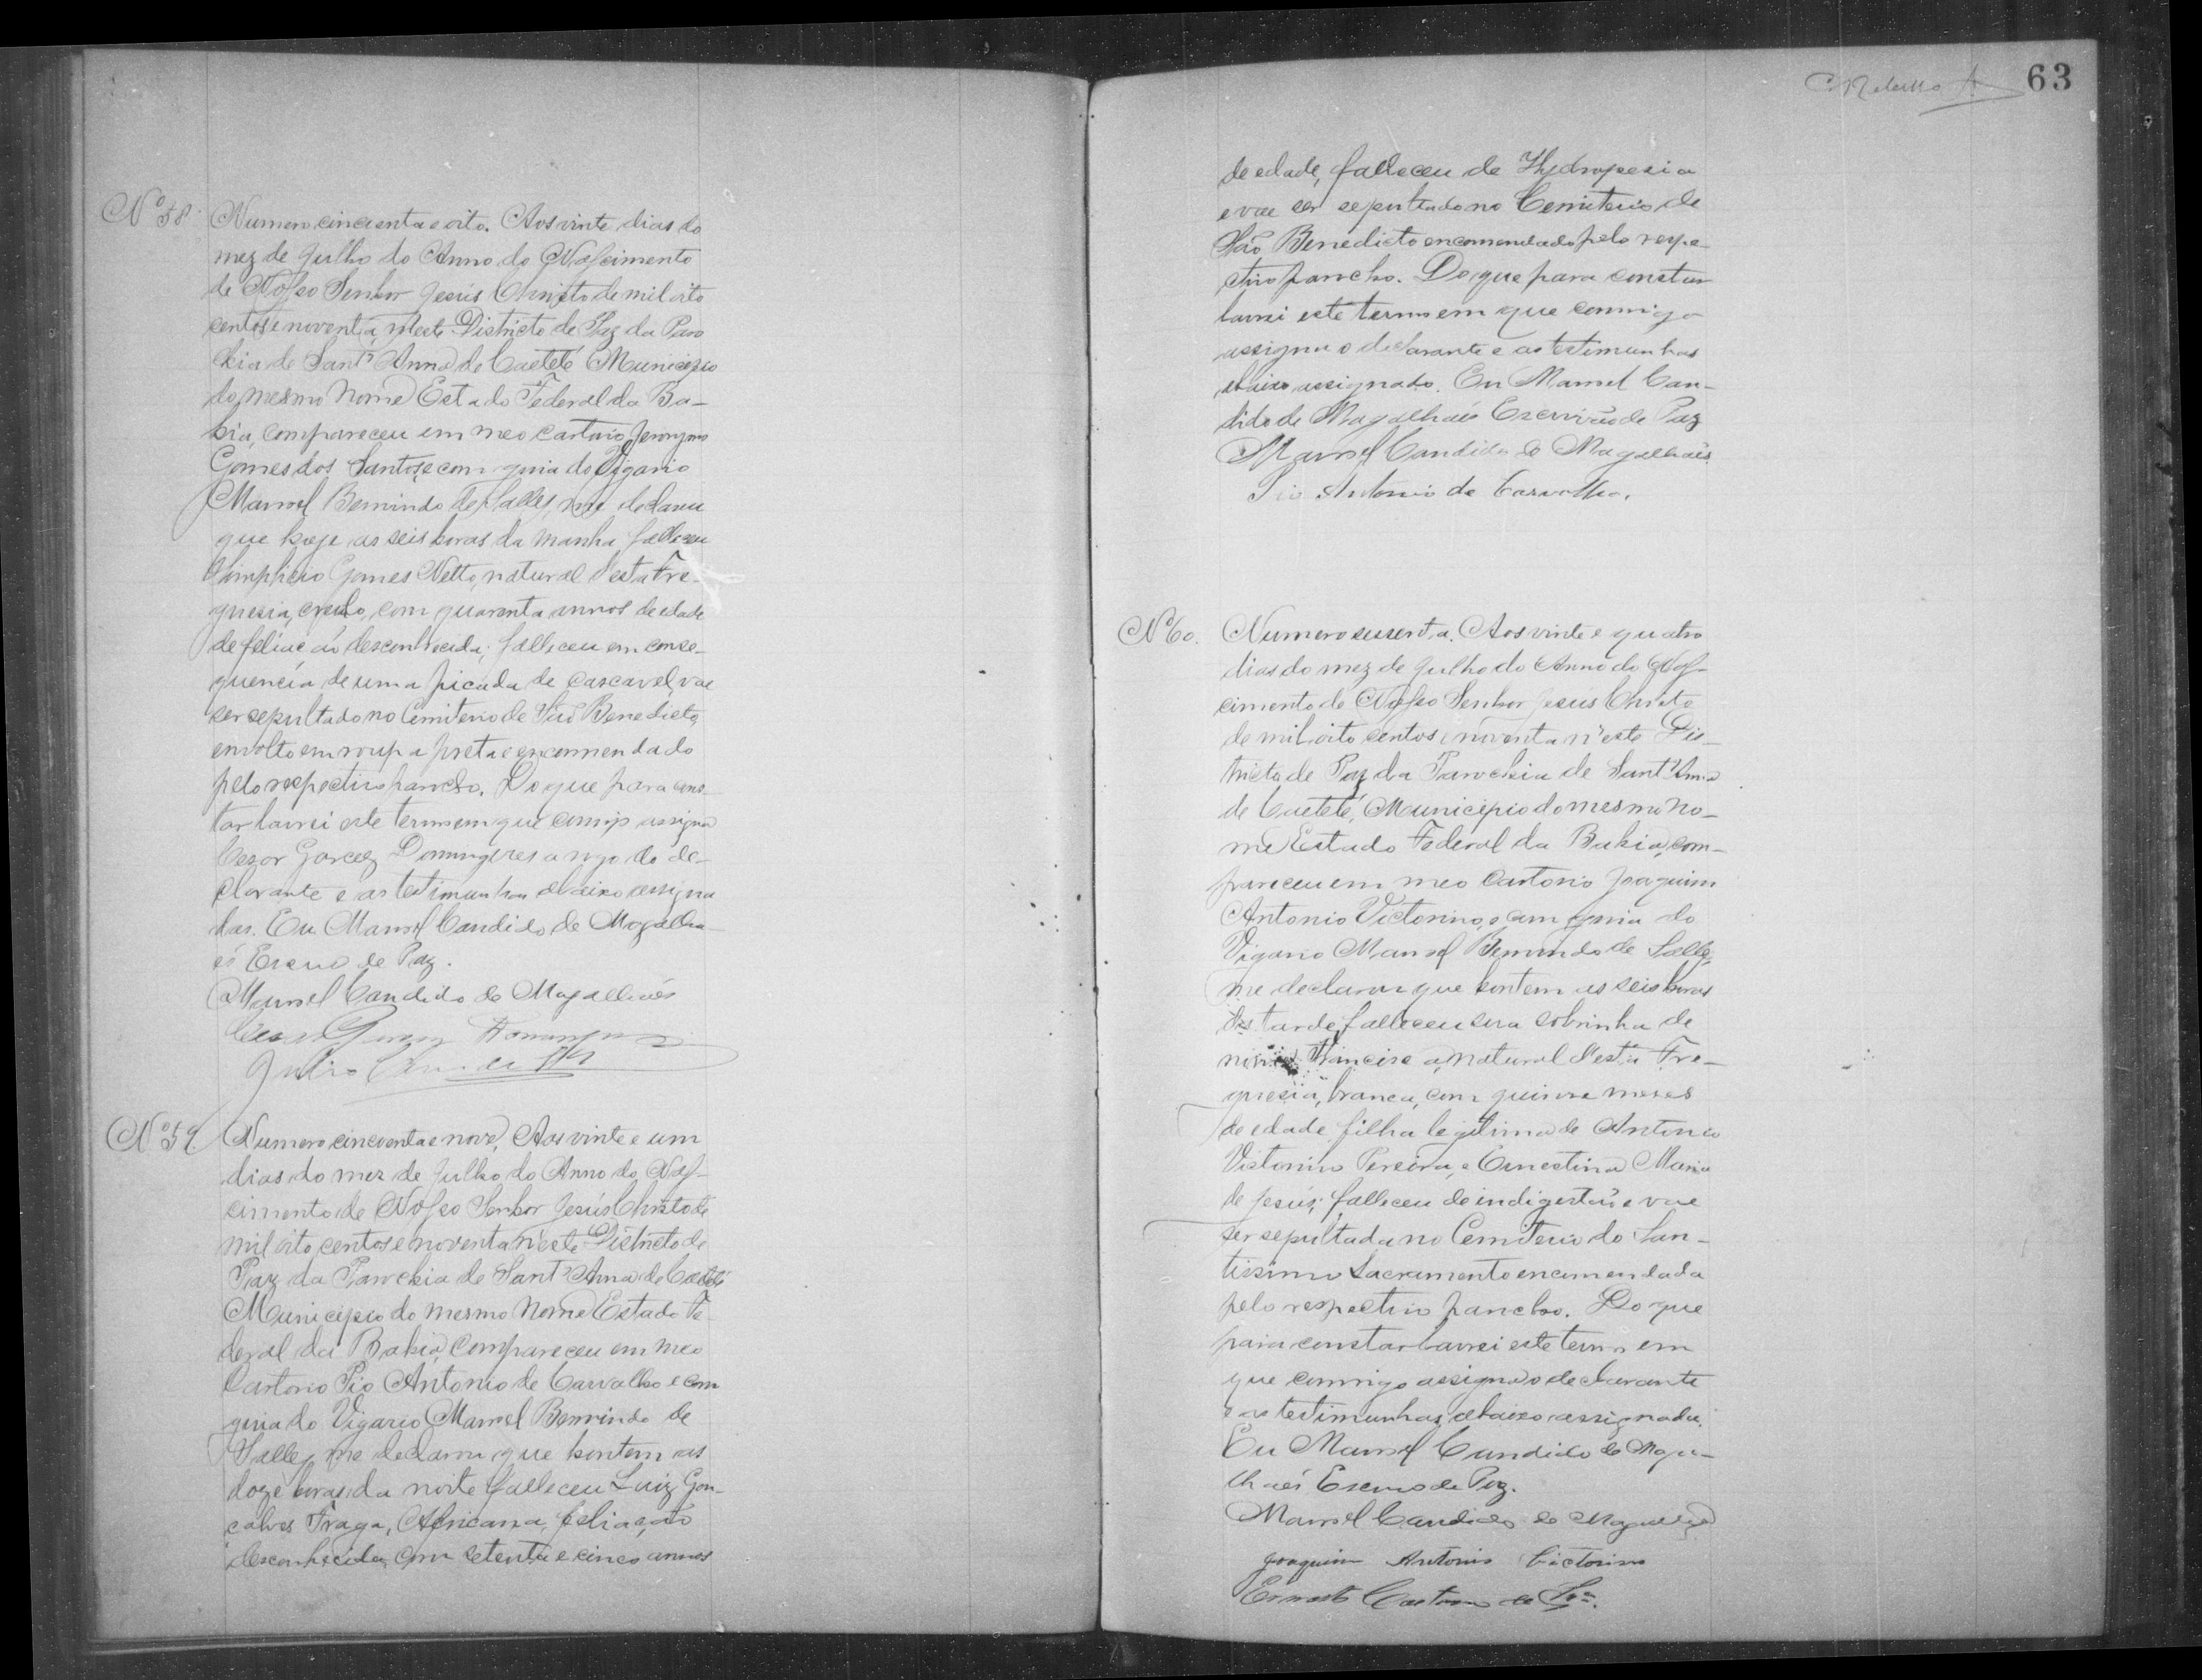 Nº 58
Numero cincuenta e oito. Aos vinte dias do
mez de Julho do Anno do Nascimento
de Nosso Senhor Jesús Christo de mil oito
centos e noventa, n'este Districto de Paz da Paro
chia de Sant'Anna de Caeteté Municipio
do mesmo Nome Estado Federal da Ba-
hia, compareceu em meo cartorio Jeronymo
Gomes dos Santos, e com guia do Vigario
Manoel Bemvindo de Salles, me declarou
que hoje as seis horas da manha falleceu
Simplicio Gomes Netto, natural d'esta Fre-
guesia, creolo, com quarenta annos de edade
de feliação desconhecida; falleceu em conse-
quencia de uma picada de cascavel, vae
ser sepultado no Cemiterio de São Benedicto,
envolto em roupa preta e encommendado
pelo respectivo parocho. Do que para cons-
tar lavrei este termo em que comigo assigna
Cezar Garcez Domingues a rogo do de-
clarante e as testimunhas abaixo assigna
das. Eu Manoel Candido de Magalha
es Escrivão de Paz.
Manoel Candido de Magalhães
Julio
Nº 59
Numero cincoenta e nove. Aos vinte e um
dias do mez de Julho do Anno do Nas-
cimento de Nosso Senhor Jesús Christo de
mil oito centos e noventa n'este Districto de
Paz da Parochia de Sant'Anna de Caeteté
Municipio do mesmo Nome Estado Fe-
deral da Bahia, compareceu em meo
Cartorio Pio Antonio de Carvalho e com
guia do Vigario Manoel Bemvindo de
Salles, me declarou que hontem as
doze horas da noite falleceu Luiz Gon-
calves Fraga, Africana, feliação
desconhecida, com setenta e cinco annos
63
de edade, falleceu de Hydropesia
e vae ser sepultado no Cemiterio de
São Benedicto encomendado pelo respe-
ctivo parocho. Do que para constar
lavrei este termo em que commigo
assigna o declarante e as testimunhas
abaixo assignado. Eu Manoel Can-
dido de Magalhaés Escrivão de Paz
Manoel Candido de Magalhaés
Pio Antonio de Carvalho.
Nº 60.
Numero sessenta. Aos vinte e quatro
dias do mez de Julho do Anno do Nas-
cimento de Nosso Senhor Jesús Christo
de mil oito centos e noventa n'este Dis-
tricto de Paz da Parochia de Sant'Anna
de Caeteté, Municipio do mesmo No-
me Estado Federal da Bahia, com-
pareceu em meo Cartorio Joaquim
Antonio Victorino, e com guia do
Vigario Manoel Bemvindo de Salles,
me declarou que hontem as seis horas
da tarde, falleceu sua sobrinha de
nome Francisca, natural d'esta Fre-
guesia, branca, com quinse meses
de edade, filha legitima de Antonio
Victorino Pereira, e Ernestina Maria
de Jesús; falleceu de indigestão e vae
ser sepultada no Cemiterio do San-
tissimo Sacramento encomendada
pelo respectivo parocho. Do que
para constar lavrei este termo em
que commigo assigna o declarante
e as testimunhas, abaixo assignada.
Eu Manoel Candido de Maga-
lhaés Escrivão de Paz.
Manoel Candido de Magalhães
Joaquim Antonio Victorino
Ernesto Caetano de